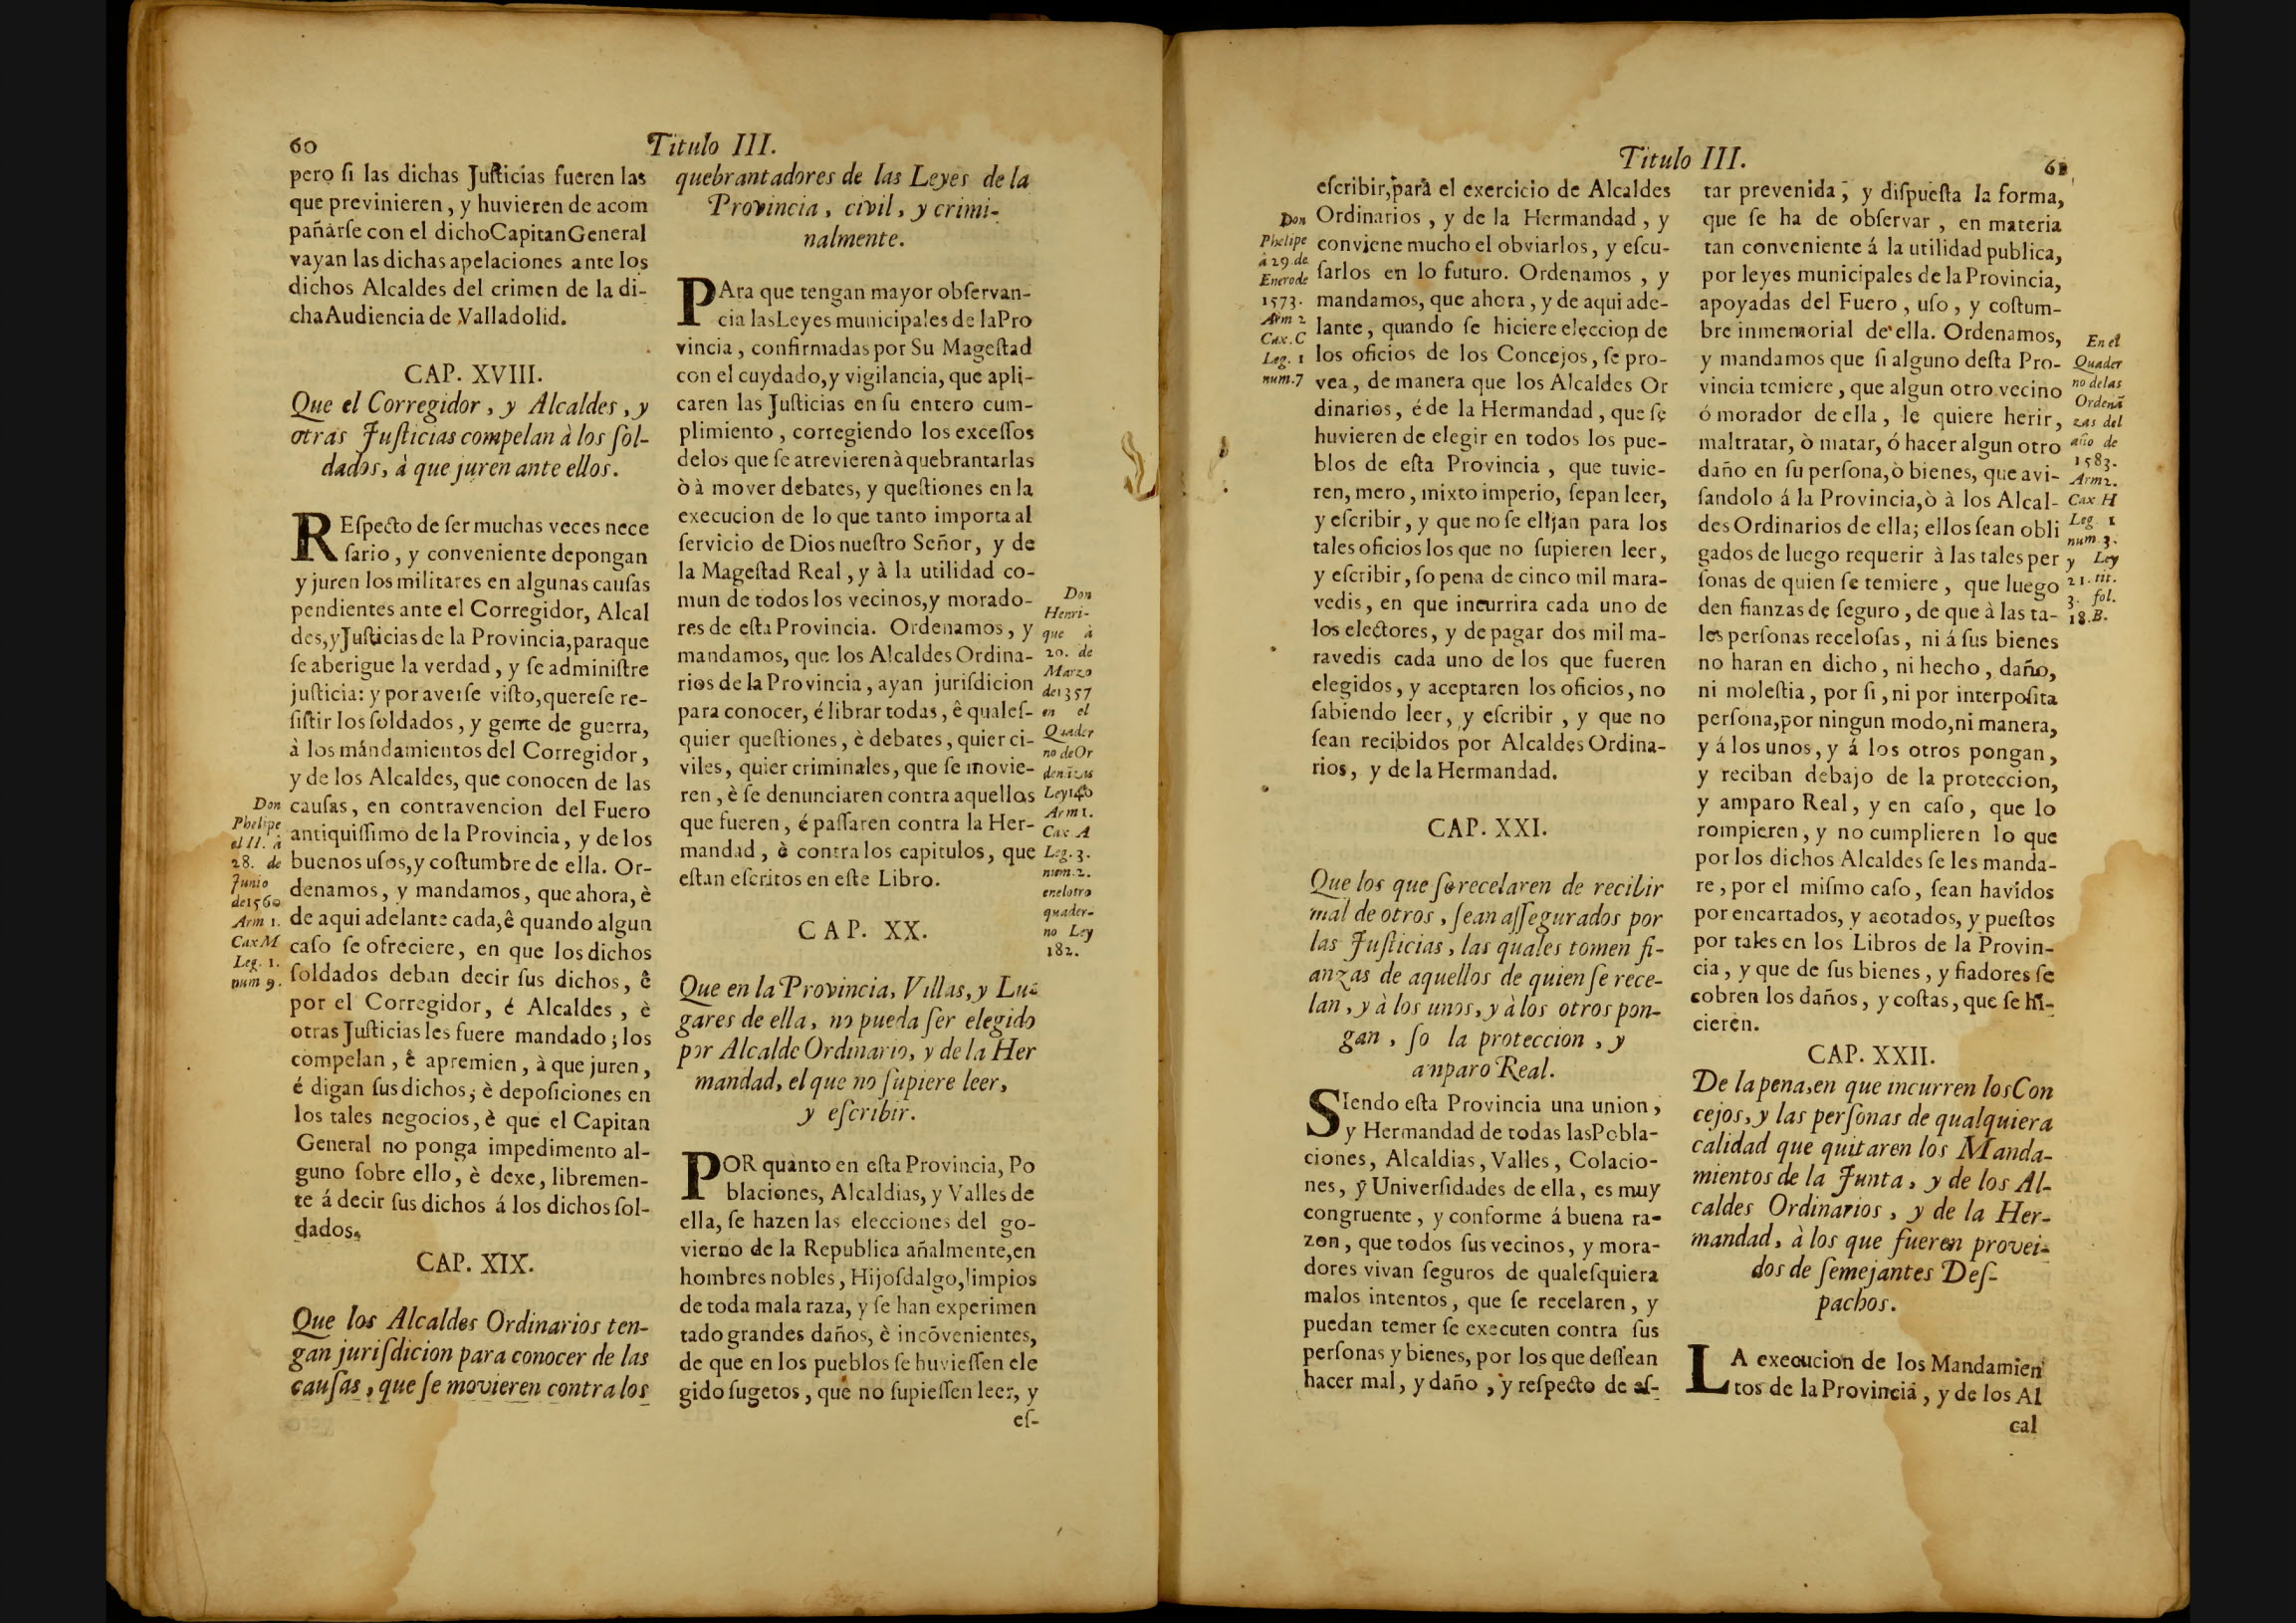 60
Titulo III.
pero ſi las dichas Juſticias fueren las
que previnieren, y huvieren de acom
pañarſe con el dichoCapitanGeneral
vayan las dichas apelaciones ante los
dichos Alcaldes del crimen de la di-
chaAudiencia de Valladolid.
CAP. XVIII.
Que el Corregidor, y Alcaldes, y
otras Juſticias compelan à los ſol-
dados, à que juren ante ellos.
REſpecto de ſer muchas veces nece
ſario, y conveniente depongan
y juren los militares en algunas cauſas
pendientes ante el Corregidor, Alcal
des,yJuſticias de la Provincia,paraque
ſe aberigue la verdad, y ſe adminiſtre
juſticia: y por averſe viſto,quereſe re-
ſiſtir los ſoldados, y gente de guerra,
à los mandamientos del Corregidor,
y de los Alcaldes, que conocen de las
cauſas, en contravencion del Fuero
antiquiſſimo de la Provincia, y de los
buenos uſos,y coſtumbre de ella. Or-
denamos, y mandamos, que ahora, è
de aqui adelante cada,ê quando algun
caſo ſe ofreciere, en que los dichos
ſoldados deban decir ſus dichos, ê
por el Corregidor, é Alcaldes, è
otras Juſticias les fuere mandado; los
compelan, ê apremien, à que juren,
é digan ſus dichos, è depoſiciones en
los tales negocios, è que el Capitan
General no ponga impedimento al-
guno ſobre ello, è dexe, libremen-
te á decir ſus dichos á los dichos ſol-
dados.
Don
Phelipe
el II. à
28. de
Junio
de1560
Arm 1.
Cax M
Leg. 1.
num 9.
CAP. XIX.
Que los Alcaldes Ordinarios ten-
gan juriſdicion para conocer de las
cauſas, que ſe movieren contra los
quebrantadores de las Leyes de la
Provincia, civil, y crimi-
nalmente.
PAra que tengan mayor obſervan-
cia lasLeyes municipales de laPro
vincia, confirmadas por Su Mageſtad
con el cuydado,y vigilancia, que apli-
caren las Juſticias en ſu entero cum-
plimiento, corregiendo los exceſſos
delos que ſe atrevieren à quebrantarlas
ò à mover debates, y queſtiones en la
execucion de lo que tanto importa al
ſervicio de Dios nueſtro Señor, y de
la Mageſtad Real, y à la utilidad co-
mun de todos los vecinos,y morado-
res de eſta Provincia. Ordenamos, y
mandamos, que los Alcaldes Ordina-
rios de la Provincia, ayan juriſdicion
para conocer, é librar todas, ê qualeſ-
quier queſtiones, è debates, quier ci-
viles, quier criminales, que ſe movie-
ren, è ſe denunciaren contra aquellos
que fueren, é paſſaren contra la Her-
mandad, è contra los capitulos, que
eſtan eſcritos en eſte Libro.
Don
Henri-
que à
20. de
Marzo
de1357
en el
Quader
no deOr
denãzas
Ley140
Arm 1.
Cax A
Leg. 3.
num. 2.
enelotro
quader-
no Ley
182.
CAP. XX.
Que en la Provincia, Villas, y Lu-
gares de ella, no pueda ſer elegido
por Alcalde Ordinario, y de la Her
mandad, el que no ſupiere leer,
y eſcribir.
POR quanto en eſta Provincia, Po
blaciones, Alcaldias, y Valles de
ella, ſe hazen las elecciones del go-
vierno de la Republica añalmente,en
hombres nobles, Hijoſdalgo,limpios
de toda mala raza, y ſe han experimen
tado grandes daños, è incõvenientes,
de que en los pueblos ſe huvieſſen ele
gido ſugetos, que no ſupieſſen leer, y
eſ-
Titulo III.
61
eſcribir,para el exercicio de Alcaldes
Ordinarios, y de la Hermandad, y
conviene mucho el obviarlos, y eſcu-
ſarlos en lo futuro. Ordenamos, y
mandamos, que ahora, y de aqui ade-
lante, quando ſe hiciere eleccion de
los oficios de los Concejos, ſe pro-
vea, de manera que los Alcaldes Or
dinarios, é de la Hermandad, que ſe
huvieren de elegir en todos los pue-
blos de eſta Provincia, que tuvie-
ren, mero, mixto imperio, ſepan leer,
y eſcribir, y que no ſe elijan para los
tales oficios los que no ſupieren leer,
y eſcribir, ſo pena de cinco mil mara-
vedis, en que incurrira cada uno de
los electores, y de pagar dos mil ma-
ravedis cada uno de los que fueren
elegidos, y aceptaren los oficios, no
ſabiendo leer, y eſcribir, y que no
ſean recibidos por Alcaldes Ordina-
rios, y de la Hermandad.
Don
Phelipe
à 29. de
Enero de
1573.
Arm 2
Cax. C
Leg. 1
num.7
CAP. XXI.
Que los que ſe recelaren de recibir
mal de otros, ſean aſſegurados por
las Juſticias, las quales tomen fi-
anzas de aquellos de quien ſe rece-
lan, y à los unos, y à los otros pon-
gan, ſo la proteccion, y
amparo Real.
SIendo eſta Provincia una union,
y Hermandad de todas lasPobla-
ciones, Alcaldias, Valles, Colacio-
nes, y Univerſidades de ella, es muy
congruente, y conforme á buena ra-
zon, que todos ſus vecinos, y mora-
dores vivan ſeguros de qualeſquiera
malos intentos, que ſe recelaren, y
puedan temer ſe executen contra ſus
perſonas y bienes, por los que deſſean
hacer mal, y daño, y reſpecto de eſ-
tar prevenida, y diſpueſta la forma,
que ſe ha de obſervar, en materia
tan conveniente á la utilidad publica,
por leyes municipales de la Provincia,
apoyadas del Fuero, uſo, y coſtum-
bre inmemorial de ella. Ordenamos,
y mandamos que ſi alguno deſta Pro-
vincia temiere, que algun otro vecino
ó morador de ella, le quiere herir,
maltratar, ò matar, ó hacer algun otro
daño en ſu perſona,ò bienes, que avi-
ſandolo á la Provincia,ò à los Alcal-
des Ordinarios de ella; ellos ſean obli
gados de luego requerir à las tales per
ſonas de quien ſe temiere, que luego
den fianzas de ſeguro, de que à las ta-
les perſonas receloſas, ni á ſus bienes
no haran en dicho, ni hecho, daño,
ni moleſtia, por ſi, ni por interpoſita
perſona,por ningun modo,ni manera,
y á los unos, y á los otros pongan,
y reciban debajo de la proteccion,
y amparo Real, y en caſo, que lo
rompieren, y no cumplieren lo que
por los dichos Alcaldes ſe les manda-
re, por el miſmo caſo, ſean havidos
por encartados, y acotados, y pueſtos
por tales en los Libros de la Provin-
cia, y que de ſus bienes, y fiadores ſe
cobren los daños, y coſtas, que ſe hi-
cieren.
En el
Quader
no delas
Ordenã
zas del
año de
1583.
Arm2.
Cax H
Leg. 1
num. 3.
y Ley
21. tit.
3. fol.
18.B.
CAP. XXII.
De la pena,en que incurren losCon
cejos, y las perſonas de qualquiera
calidad que quitaren los Manda-
mientos de la Junta, y de los Al-
caldes Ordinarios, y de la Her-
mandad, à los que fueren provei-
dos de ſemejantes Deſ-
pachos.
LA execucion de los Mandamien
tos de la Provincia, y de los Al
cal